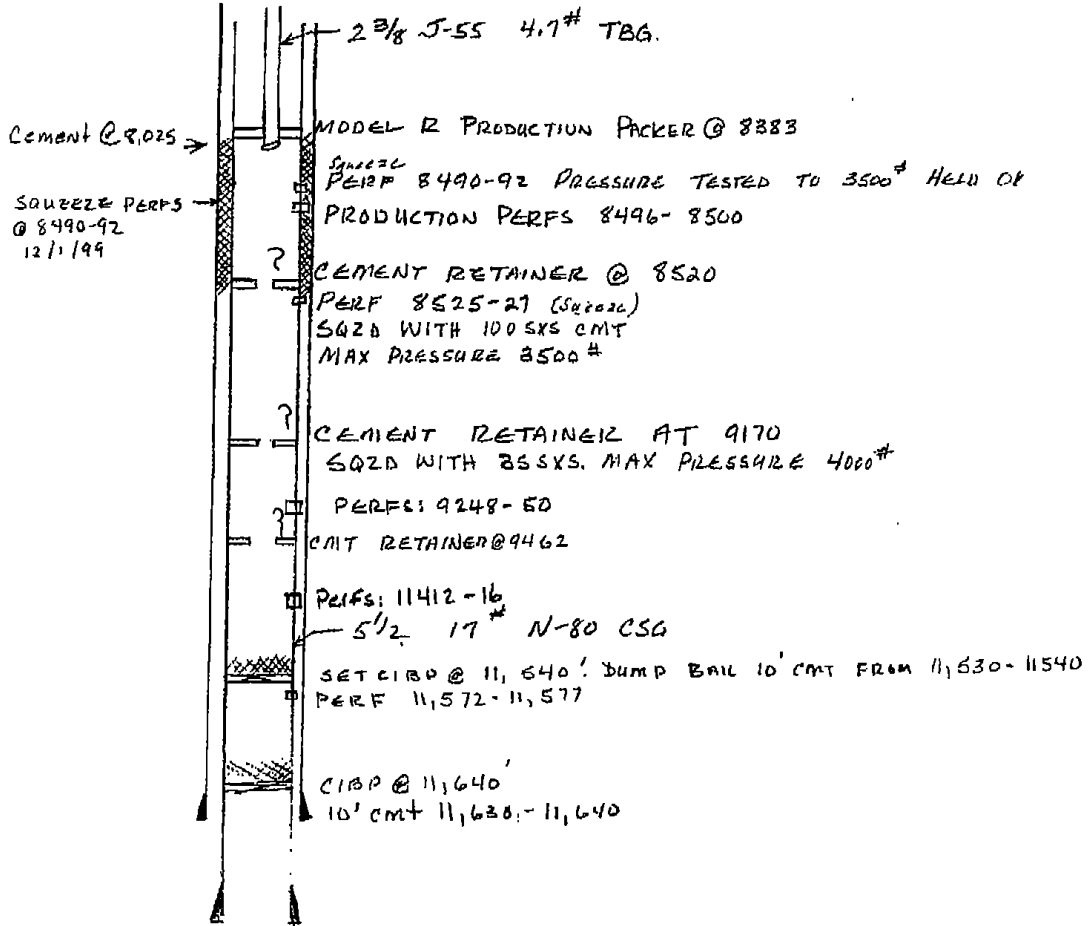 2 3/8 J-55 4.7# TBG.
Cement @ 8,025
MODEL R PRODUCTION PACKER @ 8383
Squeeze
PERF 8490-92 PRESSURE TESTED TO 3500# HELD OK
SQUEEZE PERFS
@ 8490-92
12/1/99
PRODUCTION PERFS 8496-8500
?
CEMENT RETAINER @ 8520
PERF 8525-27 (Squeeze)
SQZD WITH 100 SXS CMT
MAX PRESSURE 3500#
?
CEMENT RETAINER AT 9170
SQZD WITH 35 SXS. MAX PRESSURE 4000#
PERFS: 9248-50
?
CMT RETAINER @ 9462
Perfs: 11412-16
5 1/2 17# N-80 CSG
SET CIBP @ 11,540'. DUMP BAIL 10' CMT FROM 11,530-11540
PERF 11,572-11,577
CIBP @ 11,640'
10' cmt 11,630-11,640